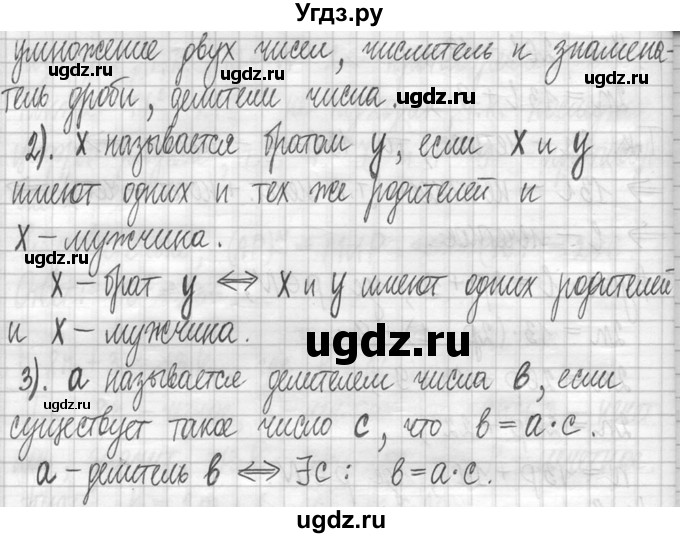 Угдз.ру
умножение двух чисел, числитель и знамена-
тель дроби, делители числа.
ugdz.ru
ugdz.ru
ugdz.ru
2). X называется братом y, если X и y
имеют одних и тех же родителей и
X – мужчина.
ugdz.ru
X – брат y ⟺ X и y имеют одних родителей
и X – мужчина.
ugdz.ru
ugdz.ru
3). a называется делителем числа в, если
ugdz.ru
существует такое число c, что в = a · c.
ugdz.ru
a – делитель в ⟺ ∃c : в = a · c.
ugdz.ru
ugdz.ru